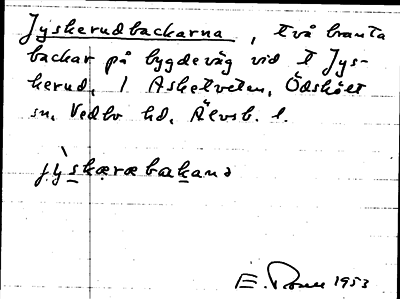 Jyskerudbackarna, två branta
backar på bygdeväg vid t Jys-
kerud, 1 Asketveten, Ödskölt
sn, Vedbo hd, Älvsb. l.
jỳskæræbakanə
E. 1953